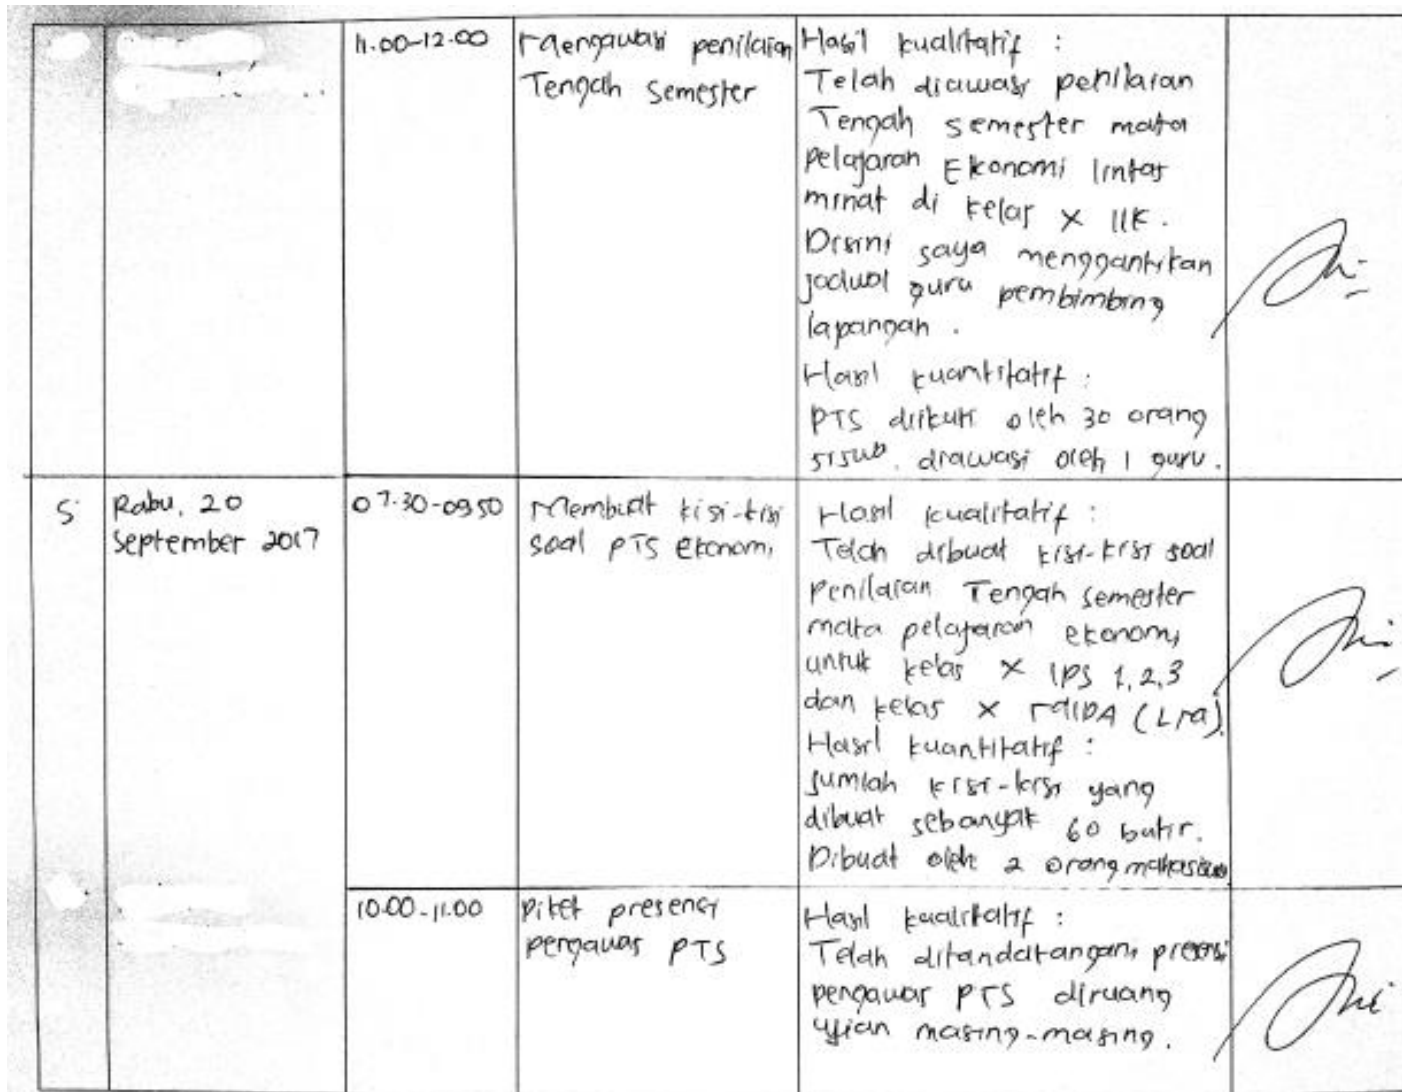 11.00-12.00
Mengawasi penilaian
Tengah semester
Hasil kualitatif :
Telah diawasi penilaian
Tengah semester mata
pelajaran Ekonomi lintas
minat di kelas X IIK.
Disini saya menggantikan
jadwal guru pembimbing
lapangan .
Hasil kuantitatif :
PTS diikuti oleh 30 orang
diawasi oleh 1 guru.
5
Rabu, 20
September 2017
07.30-09.50
Membuat kisi-kisi
soal PTS ekonomi
Hasil kualitatif :
Telah dibuat kisi-kisi soal
penilaian Tengah semester
mata pelajaran ekonomi
untuk kelas X IPS 1,2,3
dan kelas X MIPA
Hasil kuantitatif :
Jumlah kisi-kisi yang
dibuat sebanyak 60 butir.
Dibuat oleh 2 orang
10.00-11.00
Piket presensi
pengawas PTS
Hasil kualitatif :
Telah ditandatangani presensi
pengawas PTS diruang
ujian masing-masing.